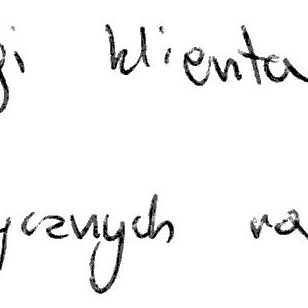 gi klienta
ycznych na